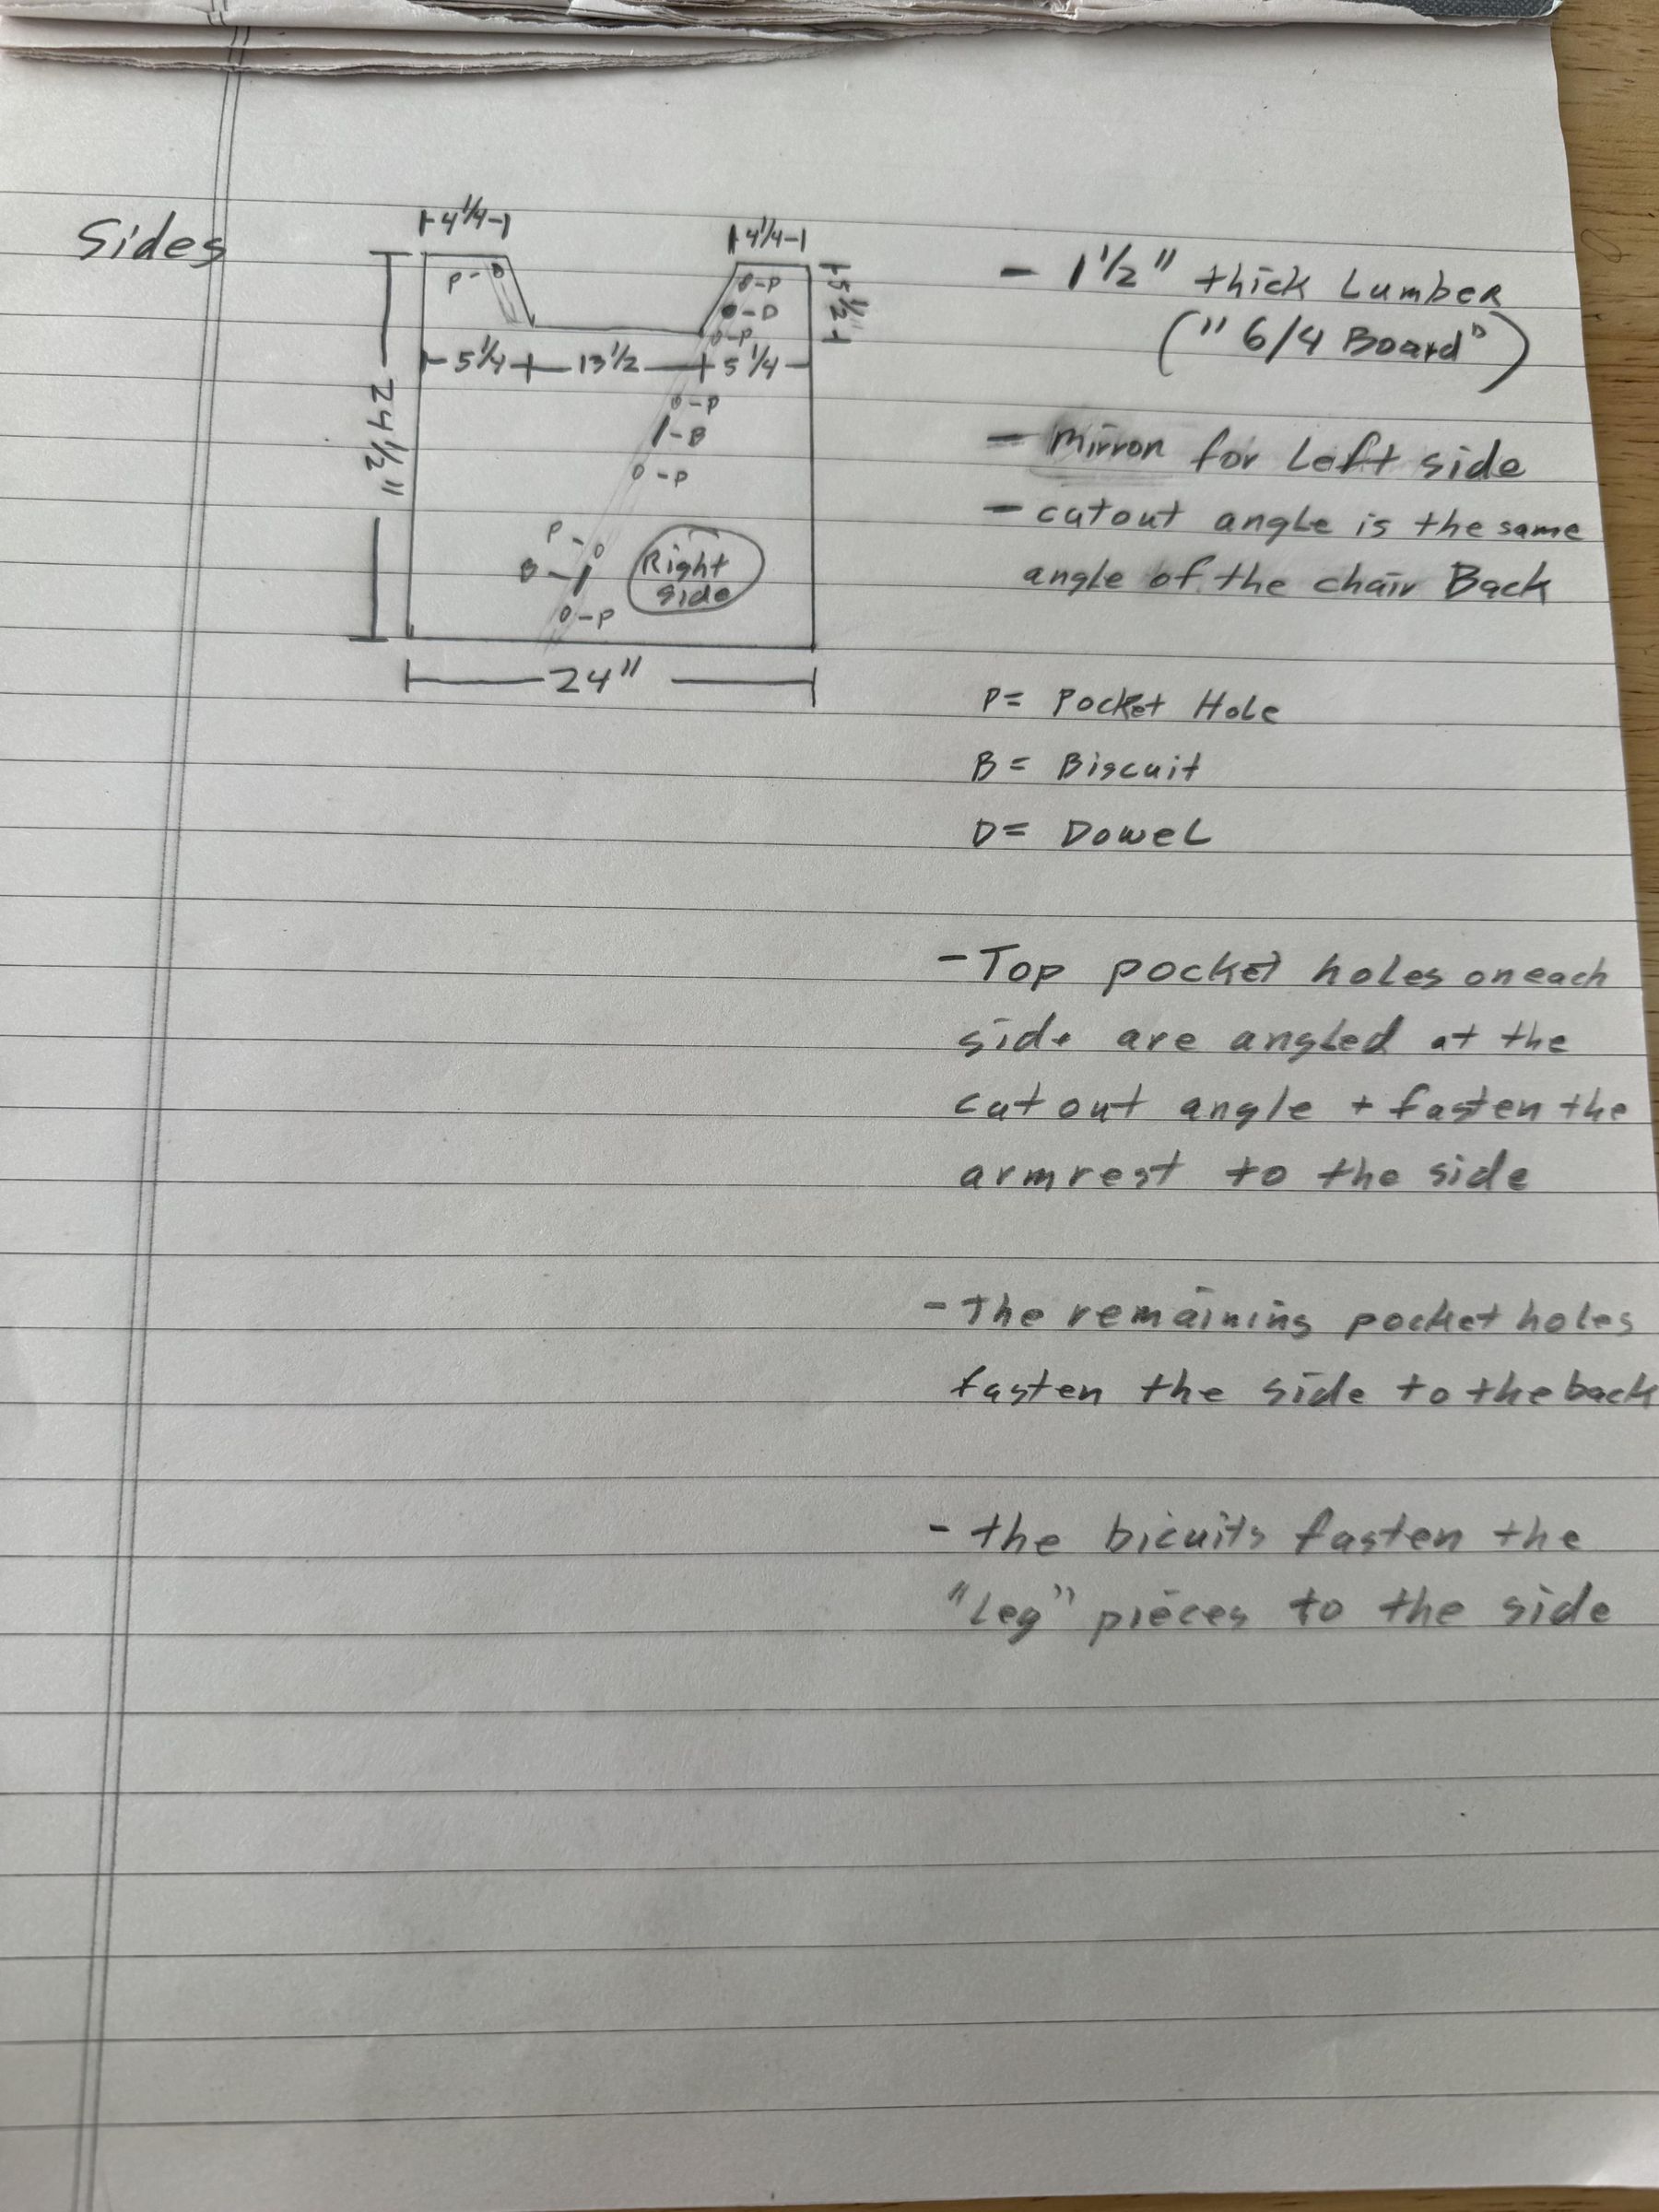 Sides
4 1/4
4 1/4
- 1 1/2" thick Lumber
("6/4 Board")
P-
-P
-D
-P
5 1/2"
5 1/4
13 1/2
5 1/4
24 1/2"
-P
-B
-P
- Mirror for Left side
- cutout angle is the same
angle of the chair Back
P-
B-
-P
Right
side
24"
P= Pocket Hole
B= Biscuit
D= Dowel
- Top pocket holes on each
side are angled at the
cutout angle + fasten the
armrest to the side
- The remaining pocket holes
fasten the side to the back
- the bicuits fasten the
"Leg" pieces to the side